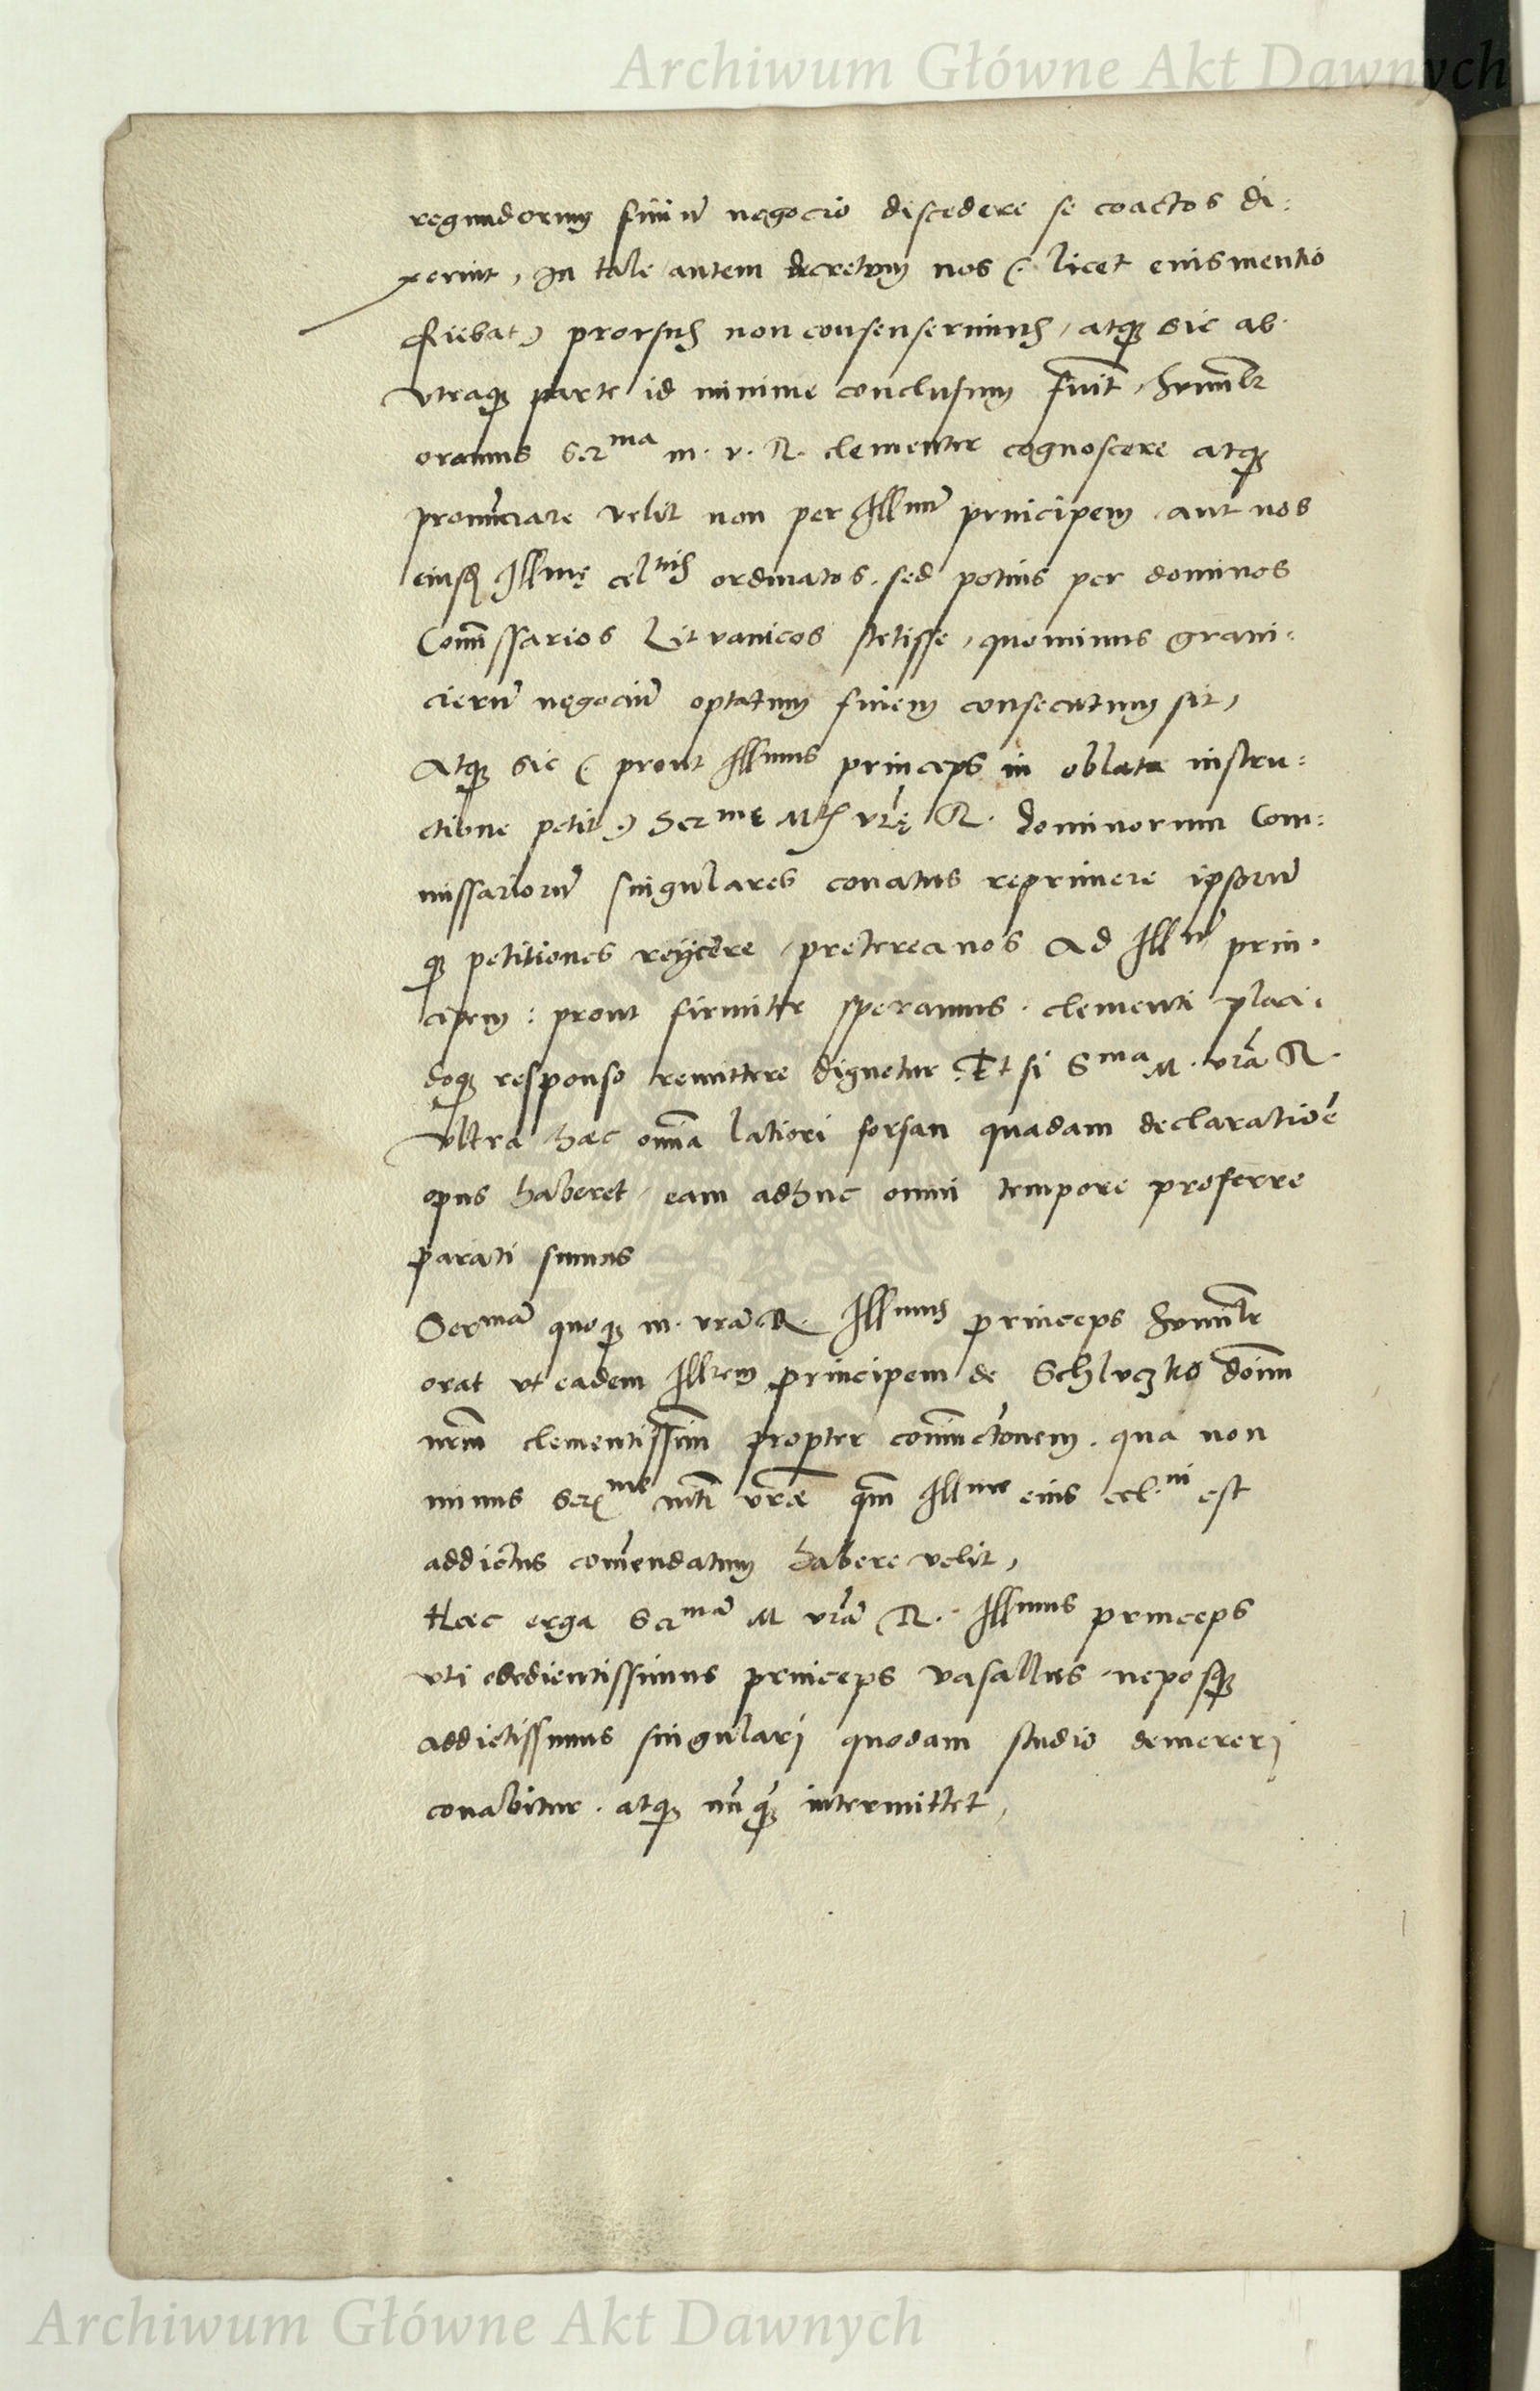 Archiwum Główne Akt Dawnych
regundorum finiū negocio discedere se coactos di:
xerint, In tale autem decretum nos (: licet eius mentio
fiebat) prorsus non consenserimus, atq; sic ab
utraq; parte id minime conclusum fuit, humilr
oramus Serma m. v. R. clementer cognoscere atq;
pronūciare velit non per Illmū principem aut nos
eiusd Illmę celnis ordinatos, sed potius per dominos
Com̄issarios Lituanicos stetisse, quominus grani:
cierū negociū optatum finem consecutum sit,
Atq; sic (: prout Illmus princeps in oblata instru:
ctione petit :) Sermę Mtis vrę R. dominorum Com:
missariorū singulares conatus reprimere ipsorū
q; petitiones reijcere, preterea nos ad Illm̄ prin:
cipem: prout firmiter speramus. clementi placi:
doq; responso remittere dignetur. Et si Sma M. vrā R.
ultra haec om̄ia latiori forsan quadam declaratiōe
opus haberet, eam adhuc omni tempore proferre
parati sumus
Sermā quoq; m. vrā R. Illmus princeps humilr
orat ut eadem Illrem principem de Schluczko dom̄
nrm̄ clementissim̄ propter coniunctionem, qua non
minus Sermę mti vrae qm̄ Illmę eius celni est
addictus com̄endatum habere velit,
Haec erga Sermā M vrā R. Illmus princeps
uti obedientissimus princeps vasallus neposq;
addictissimus singulari quodam studio demererj
conabitur. atq; nūq; intermittet,
Archiwum Główne Akt Dawnych